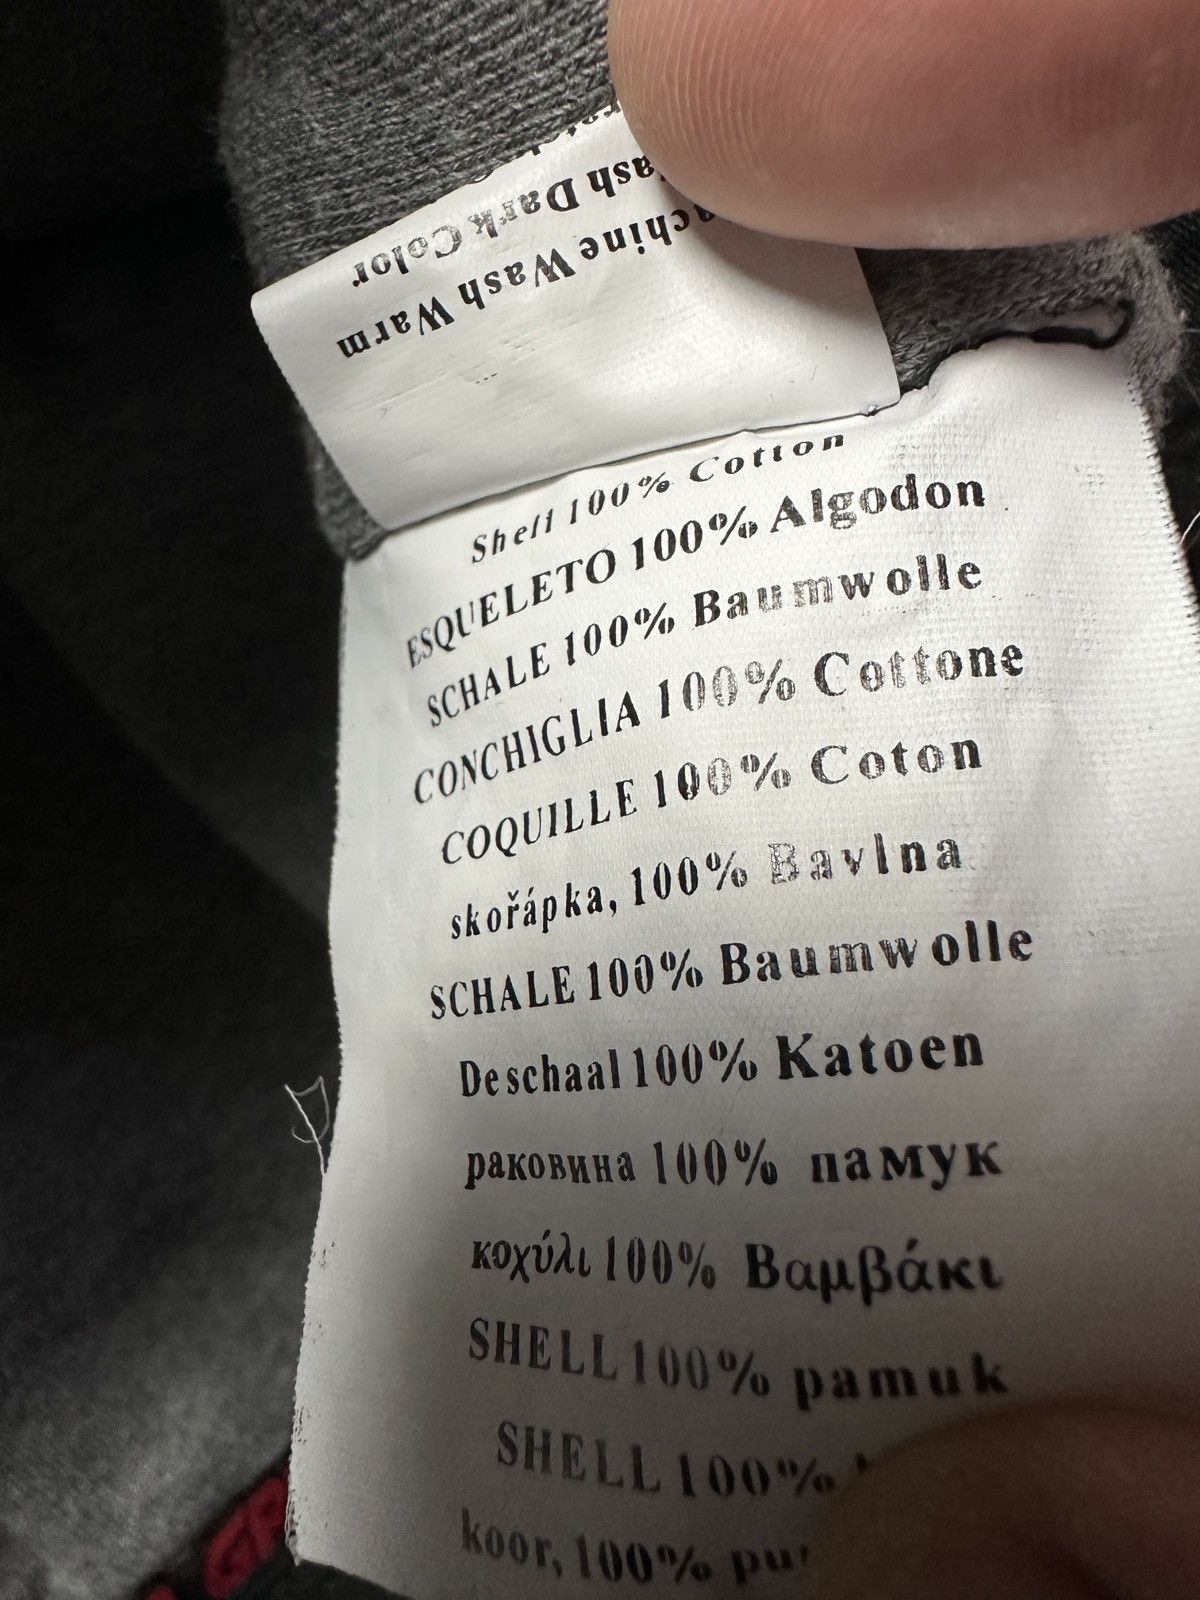 Machine Wash Warm
Wash Dark Color
Shell 100% Cotton
ESQUELETO 100% Algodon
SCHALE 100% Baumwolle
CONCHIGLIA 100% Cottone
COQUILLE 100% Coton
skořápka, 100% Bavlna
SCHALE 100% Baumwolle
Deschaal 100% Katoen
раковина 100% памук
κοχύλι 100% Βαμβάκι
SHELL 100% pamuk
SHELL 100%
koor, 100%